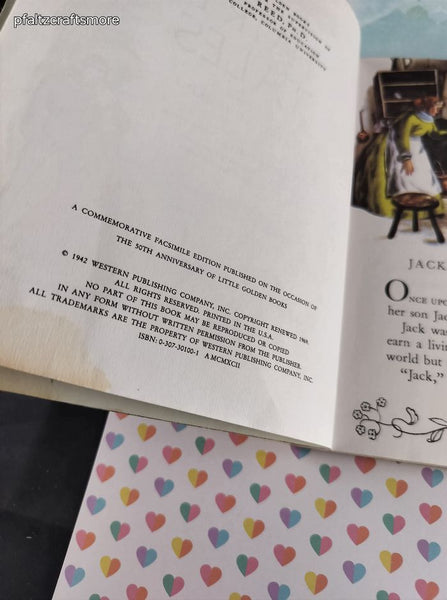 pfaltzcraftsmore
REED, Ph.D.
PROFESSOR OF EDUCATION
COLLEGE, COLUMBIA UNIVERSITY
A COMMEMORATIVE FACSIMILE EDITION PUBLISHED ON THE OCCASION OF
THE 50TH ANNIVERSARY OF LITTLE GOLDEN BOOKS
© 1942 WESTERN PUBLISHING COMPANY, INC. COPYRIGHT RENEWED 1969.
ALL RIGHTS RESERVED. PRINTED IN THE U.S.A.
NO PART OF THIS BOOK MAY BE REPRODUCED OR COPIED
IN ANY FORM WITHOUT WRITTEN PERMISSION FROM THE PUBLISHER.
ALL TRADEMARKS ARE THE PROPERTY OF WESTERN PUBLISHING COMPANY, INC.
ISBN: 0-307-30100-1 A MCMXCII
JACK
ONCE UPO
her son Jac
Jack wa
earn a livin
world but
"Jack,"